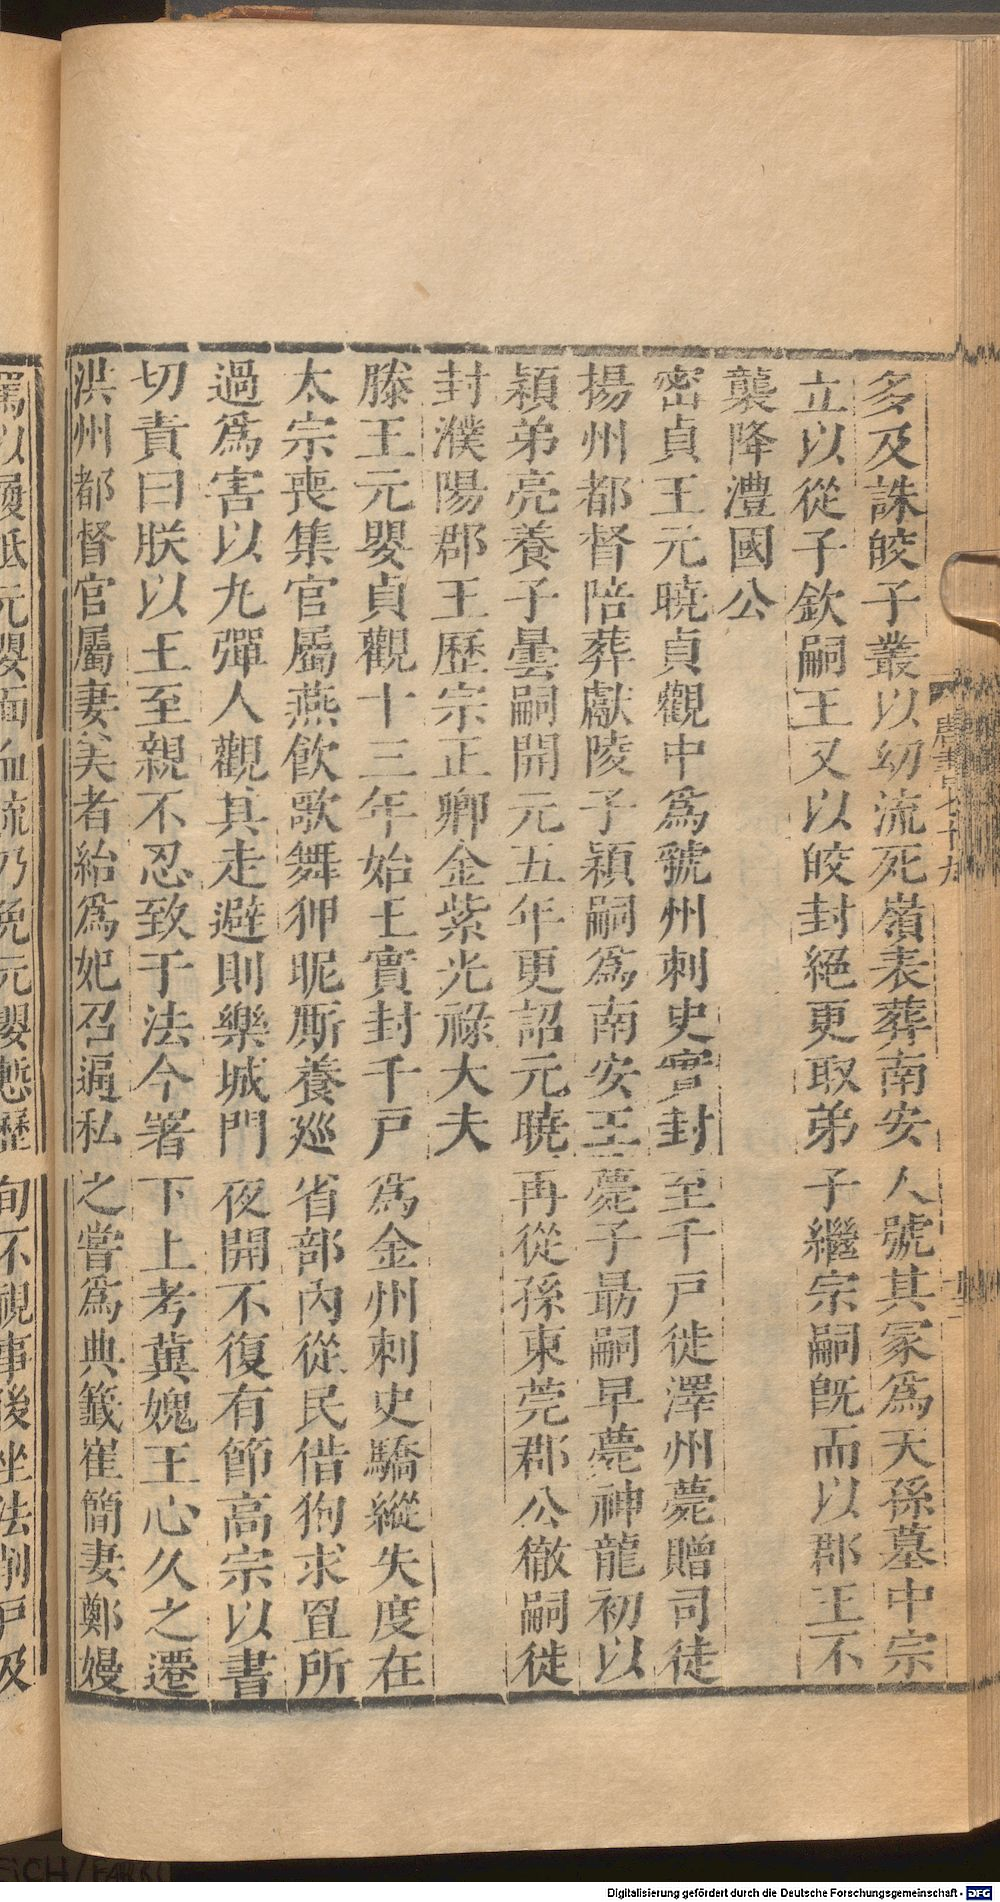 多及誅皎子叢以幼流死嶺表葬南安人號其冢爲天孫墓中宗
立以從子欽嗣王又以皎封絕更取弟子繼宗嗣旣而以郡王不
襲降澧國公
密貞王元曉貞觀中爲虢州刺史實封至千戶徙澤州薨贈司徒
揚州都督陪葬獻陵子穎嗣爲南安王薨子勗嗣早薨神龍初以
穎弟亮養子曇嗣開元五年更詔元曉再從孫東莞郡公徹嗣徙
封濮陽郡王歷宗正卿金紫光祿大夫
滕王元嬰貞觀十三年始王實封千戶爲金州刺史驕縱失度在
太宗喪集官屬燕飲歌舞狎昵厮養廵省部內從民借狗求罝所
過爲害以丸彈人觀其走避則樂城門夜開不復有節高宗以書
切責曰朕以王至親不忍致于法今署下上考冀媿王心久之遷
洪州都督官屬妻美者紿爲妃召逼私之嘗爲典籖崔簡妻鄭嫚
罵以履抵元嬰面血流乃免元嬰慙歷旬不視事後坐法削戶及
Digitalisierung gefördert durch die Deutsche Forschungsgemeinschaft - DFG